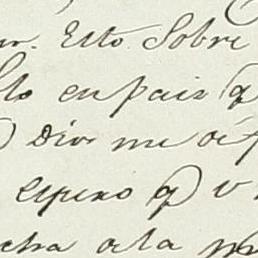 Esto Sobre
en pais q
Dios me
espero q v
cha a la